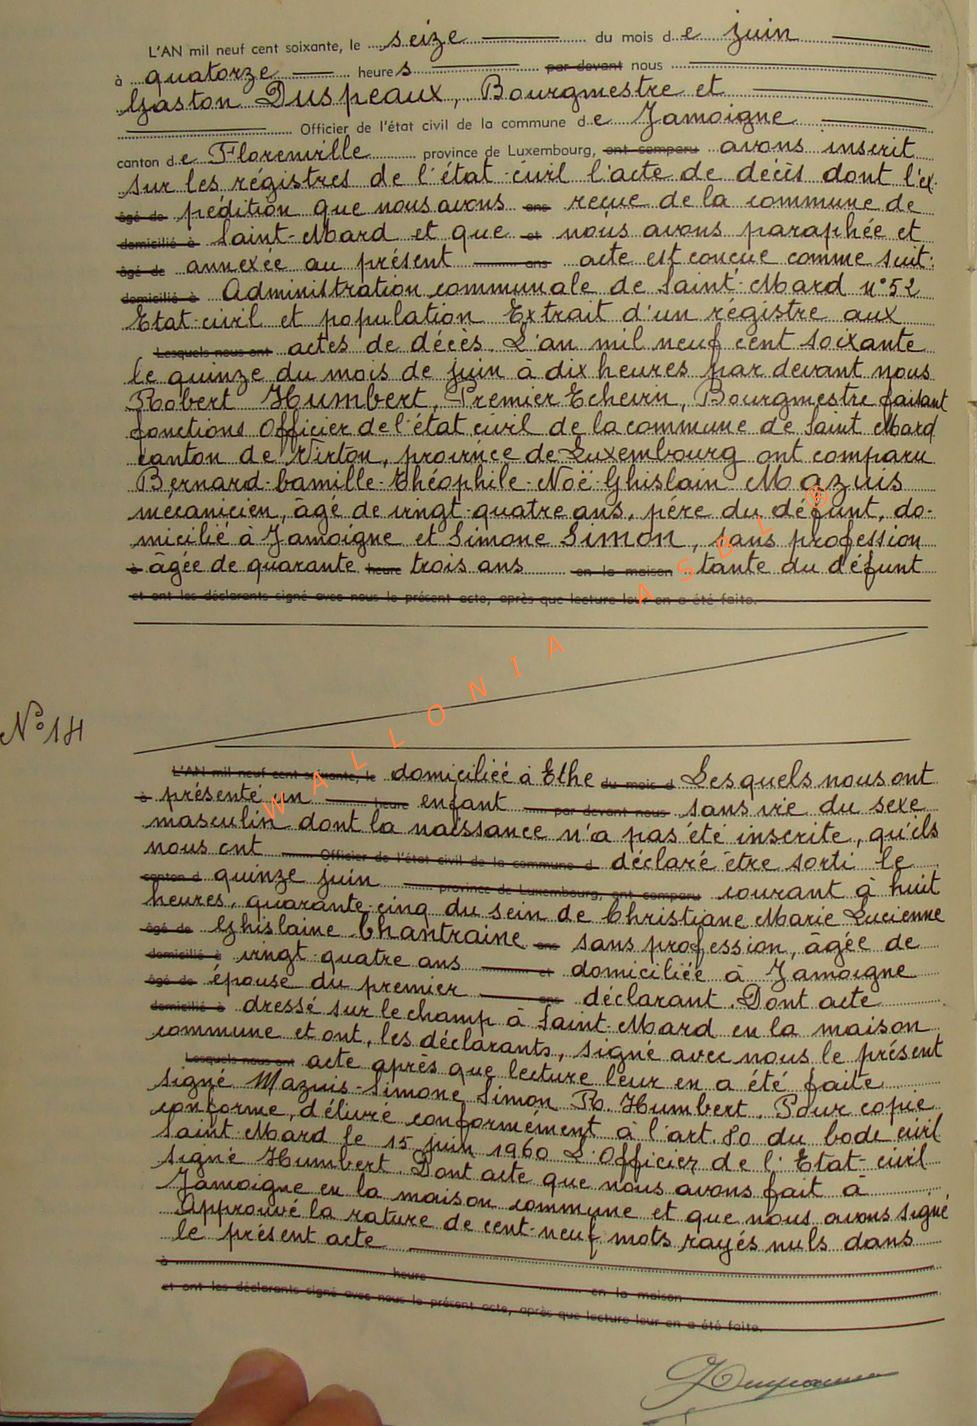 L'AN mil neuf cent soixante, le seize du mois de juin
à quatorze heures par devant nous
Gaston Duspeaux, Bourgmestre et
Officier de l'état civil de la commune de Jamoigne
canton de Florenville province de Luxembourg, ont comparu avons inscrit
sur les régistres de l'état-civil l'acte de décès dont l'ex-
âgé de pédition que nous avons ans reçue de la commune de
domicilié à Saint-Mard et que et nous avons paraphée et
âgé de annexée au présent ans acte est conçue comme suit:
domicilié à Administration communale de Saint-Mard n°52
Etat-civil et population Extrait d'un régistre aux
Lesquels nous ont actes de décès. L'an mil neuf cent soixante
le quinze du mois de juin à dix heures par devant nous
Robert Humbert, Premier Echevin, Bourgmestre faisant
fonctions Officier de l'état civil de la commune de Saint Mard
canton de Virton, province de Luxembourg ont comparu
Bernard-Camille-Théophile-Noë-Ghislain Mazuis
mécanicien, âgé de vingt-quatre ans, père du défunt, do-
micilié à Jamoigne et Simone Simon, sans profession
à âgée de quarante heure trois ans en la maison tante du défunt
et ont les déclarants signé avec nous le présent acte, après que lecture leur en a été faite.
N° 14
L'AN mil neuf cent soixante, le domiciliée à Ethe du mois d Lesquels nous ont
à présenté un heure enfant par devant nous sans vie du sexe
masculin dont la naissance n'a pas été inscrite, qu'ils
nous ont Officier de l'état civil de la commune d déclaré être sorti le
canton d quinze juin province de Luxembourg, ont comparu courant à huit
heures, quarante-cinq du sein de Christiane Marie Lucienne
âgé de Ghislaine Chantraine ans sans profession, âgée de
domicilié à vingt-quatre ans et domiciliée à Jamoigne
âgé de épouse du premier ans déclarant. Dont acte
domicilié à dressé sur le champ à Saint-Mard en la maison
commune et ont, les déclarants, signé avec nous le présent
Lesquels nous ont acte après que lecture leur en a été faite
signé Mazuis-Simone Simon Ro. Humbert. Pour copie
conforme, délivré conformément à l'art. 80 du Code civil
Saint-Mard le 15 juin 1960 L'Officier de l'Etat-civil
signé Humbert. Dont acte que nous avons fait à
Jamoigne en la maison commune et que nous avons signé
Approuvé la rature de cent-neuf mots rayés nuls dans
le présent acte
à heure en la maison
et ont les déclarants signé avec nous le présent acte, après que lecture leur en a été faite.
WALLONIA ASBL ©